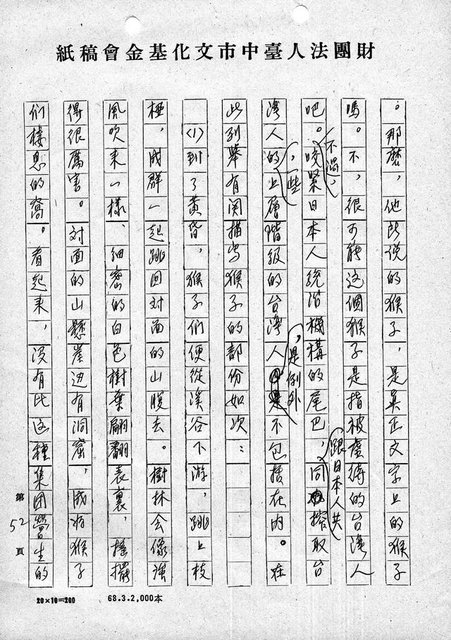 財團法人臺中市文化基金會稿紙
。那麼，他所說的猴子，是真正文字上的猴子
嗎。不，很可能這個猴子是指被虐待的台灣人
不過，
吧。咬緊日本人統治機構的尾巴，同搾取台
跟日本人共
，一些
灣人的上層階級的台灣人是不包括在內。在
，是例外
此列舉有関描寫猴子的部份如次：
(1)到了黃昏，猴子們便從溪谷下游，跳上枝
極，成群一起跳回对面的山腹去。樹林会像強
風吹來一樣，細密的白色樹葉翩翩表裏，搖擺
得很厲害。对面的山懸崖边有洞窟，成為猴子
们棲息的窩。看起來，沒有比这種集团營生的
第52頁
20×10=200
68.3.2,000本